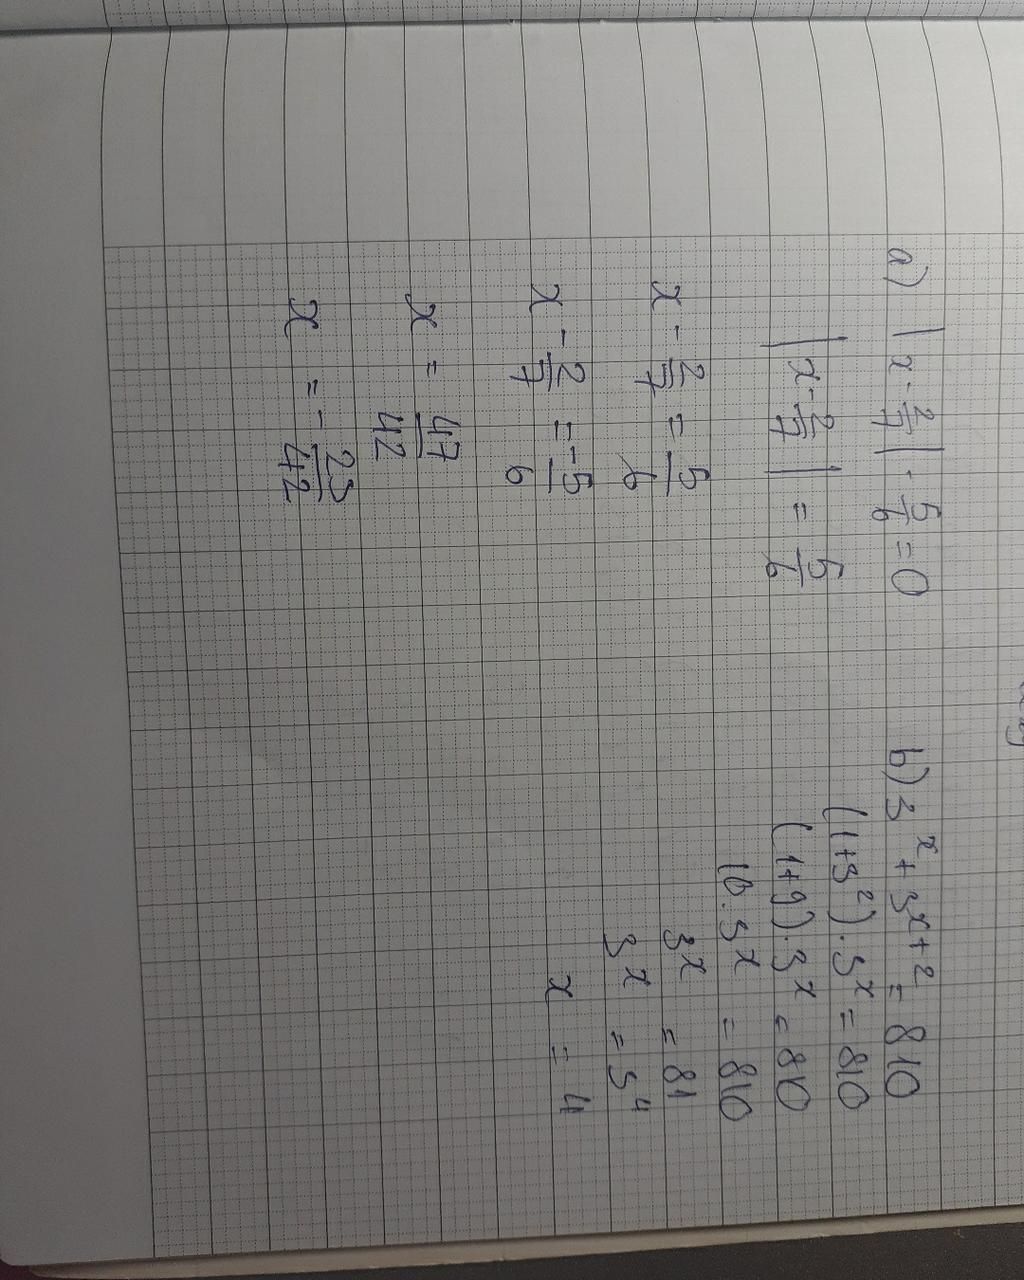 a) |x - 2/7| - 5/6 = 0
|x - 2/7| = 5/6
x - 2/7 = 5/6
x - 2/7 = -5/6
x = 47/42
x = - 23/42
b) 3^x + 3^(x+2) = 810
(1+3^2).3^x = 810
(1+9).3^x = 810
10.3^x = 810
3^x = 81
3^x = 3^4
x = 4